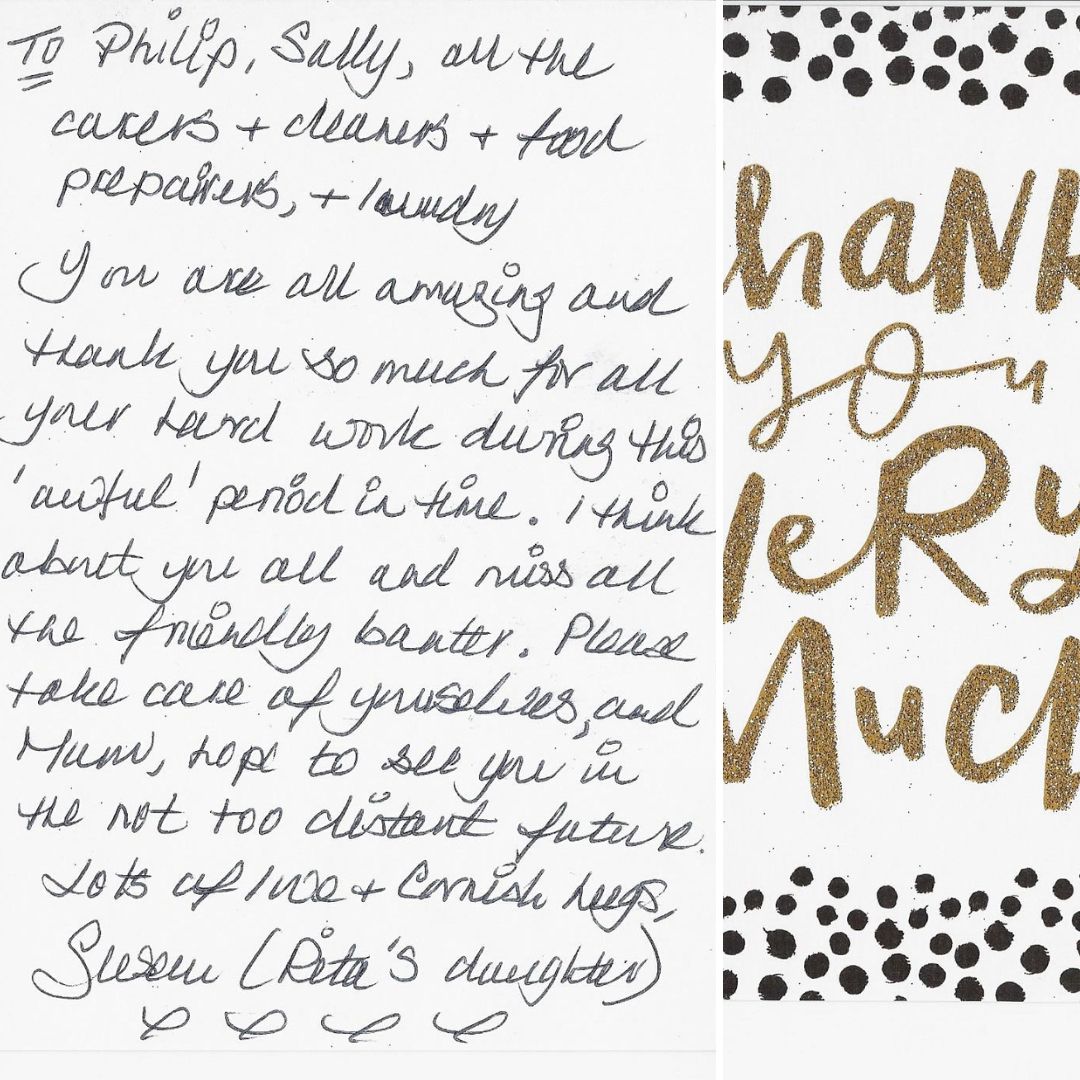 To Philip, Sally, all the
carers + cleaners + food
prepairers, + laundry
You are all amazing and
thank you so much for all
your hard work during this
'awful' period in time. I think
about you all and miss all
the friendly banter. Please
take care of yourselves, and
Mum, hope to see you in
the not too distant future.
Lots of love + Cornish hugs,
Susan (Rita's daughter)
Thank
you
VeRy
Much